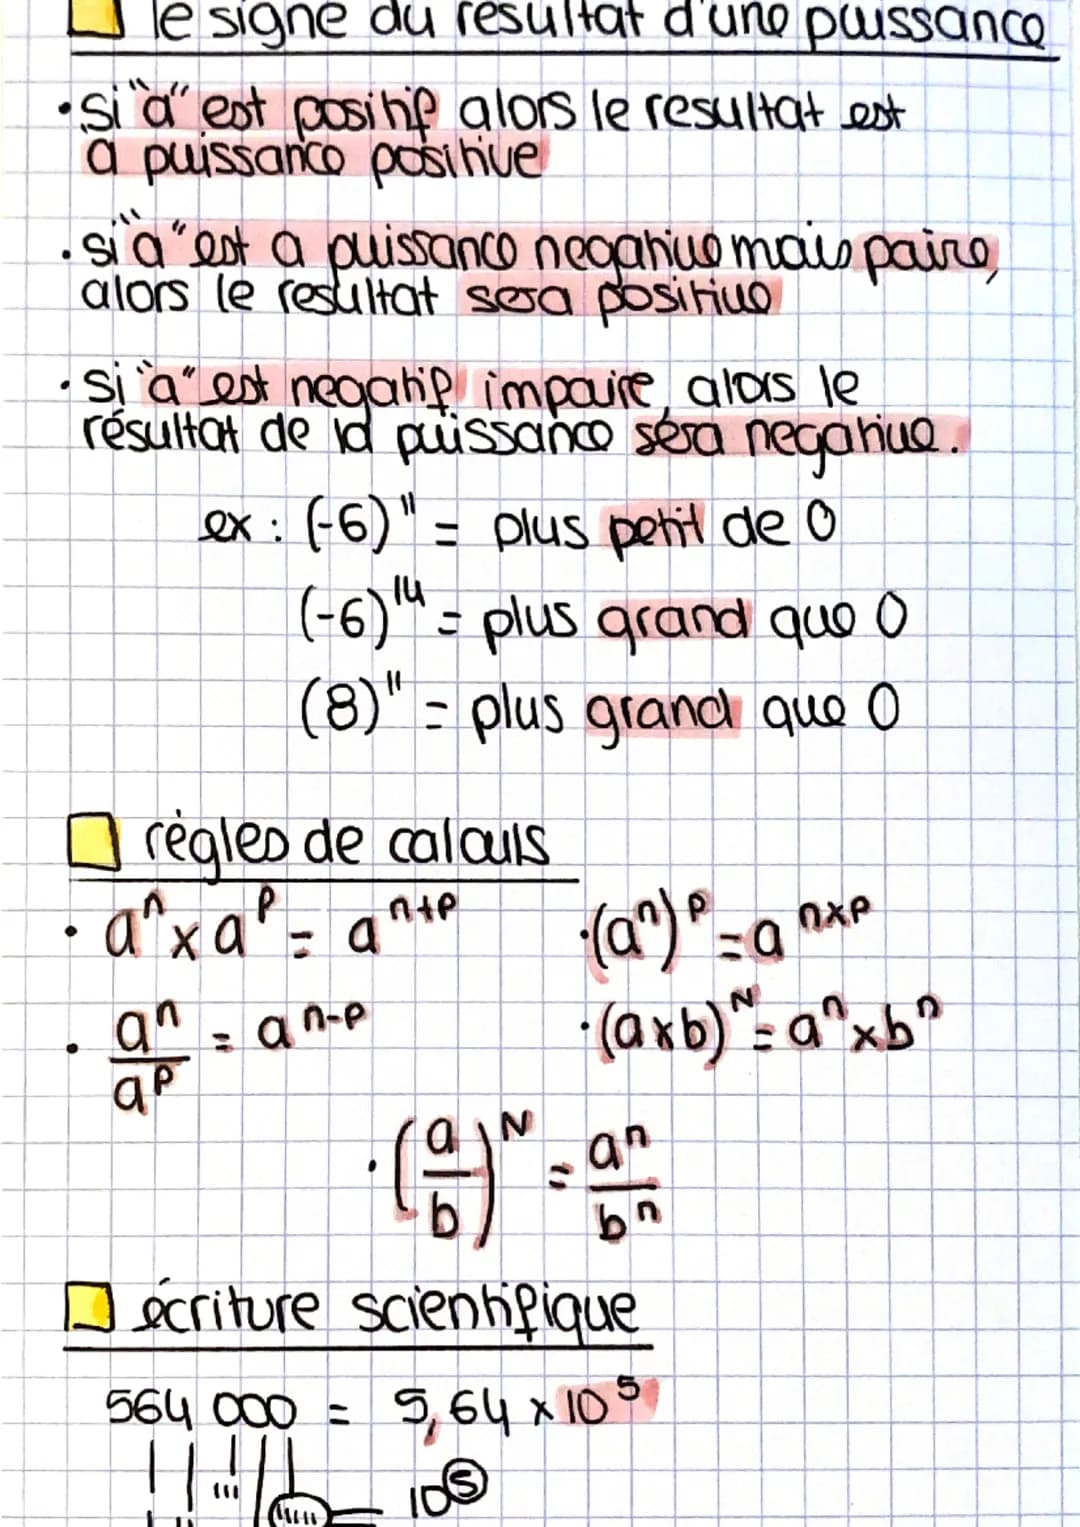 le signe du resultat d'une puissance
• si "a" est positif alors le resultat est
a puissance positive
• si "a" est a puissance negative mais paire,
alors le resultat sera positive
• si "a" est negatif impaire, alors le
résultat de la puissance sera negative.
ex : (-6)¹¹ = plus petit de 0
(-6)¹⁴ = plus grand que 0
(8)¹¹ = plus grand que 0
régles de calculs
• aⁿ x aᵖ = aⁿ⁺ᵖ • (aⁿ)ᵖ = aⁿˣᵖ
• aⁿ/aᵖ = aⁿ⁻ᵖ • (a x b)ᴺ = aⁿ x bⁿ
• (a/b)ᴺ = aⁿ/bⁿ
écriture scientifique
564 000 = 5,64 x 10⁵
10⑤